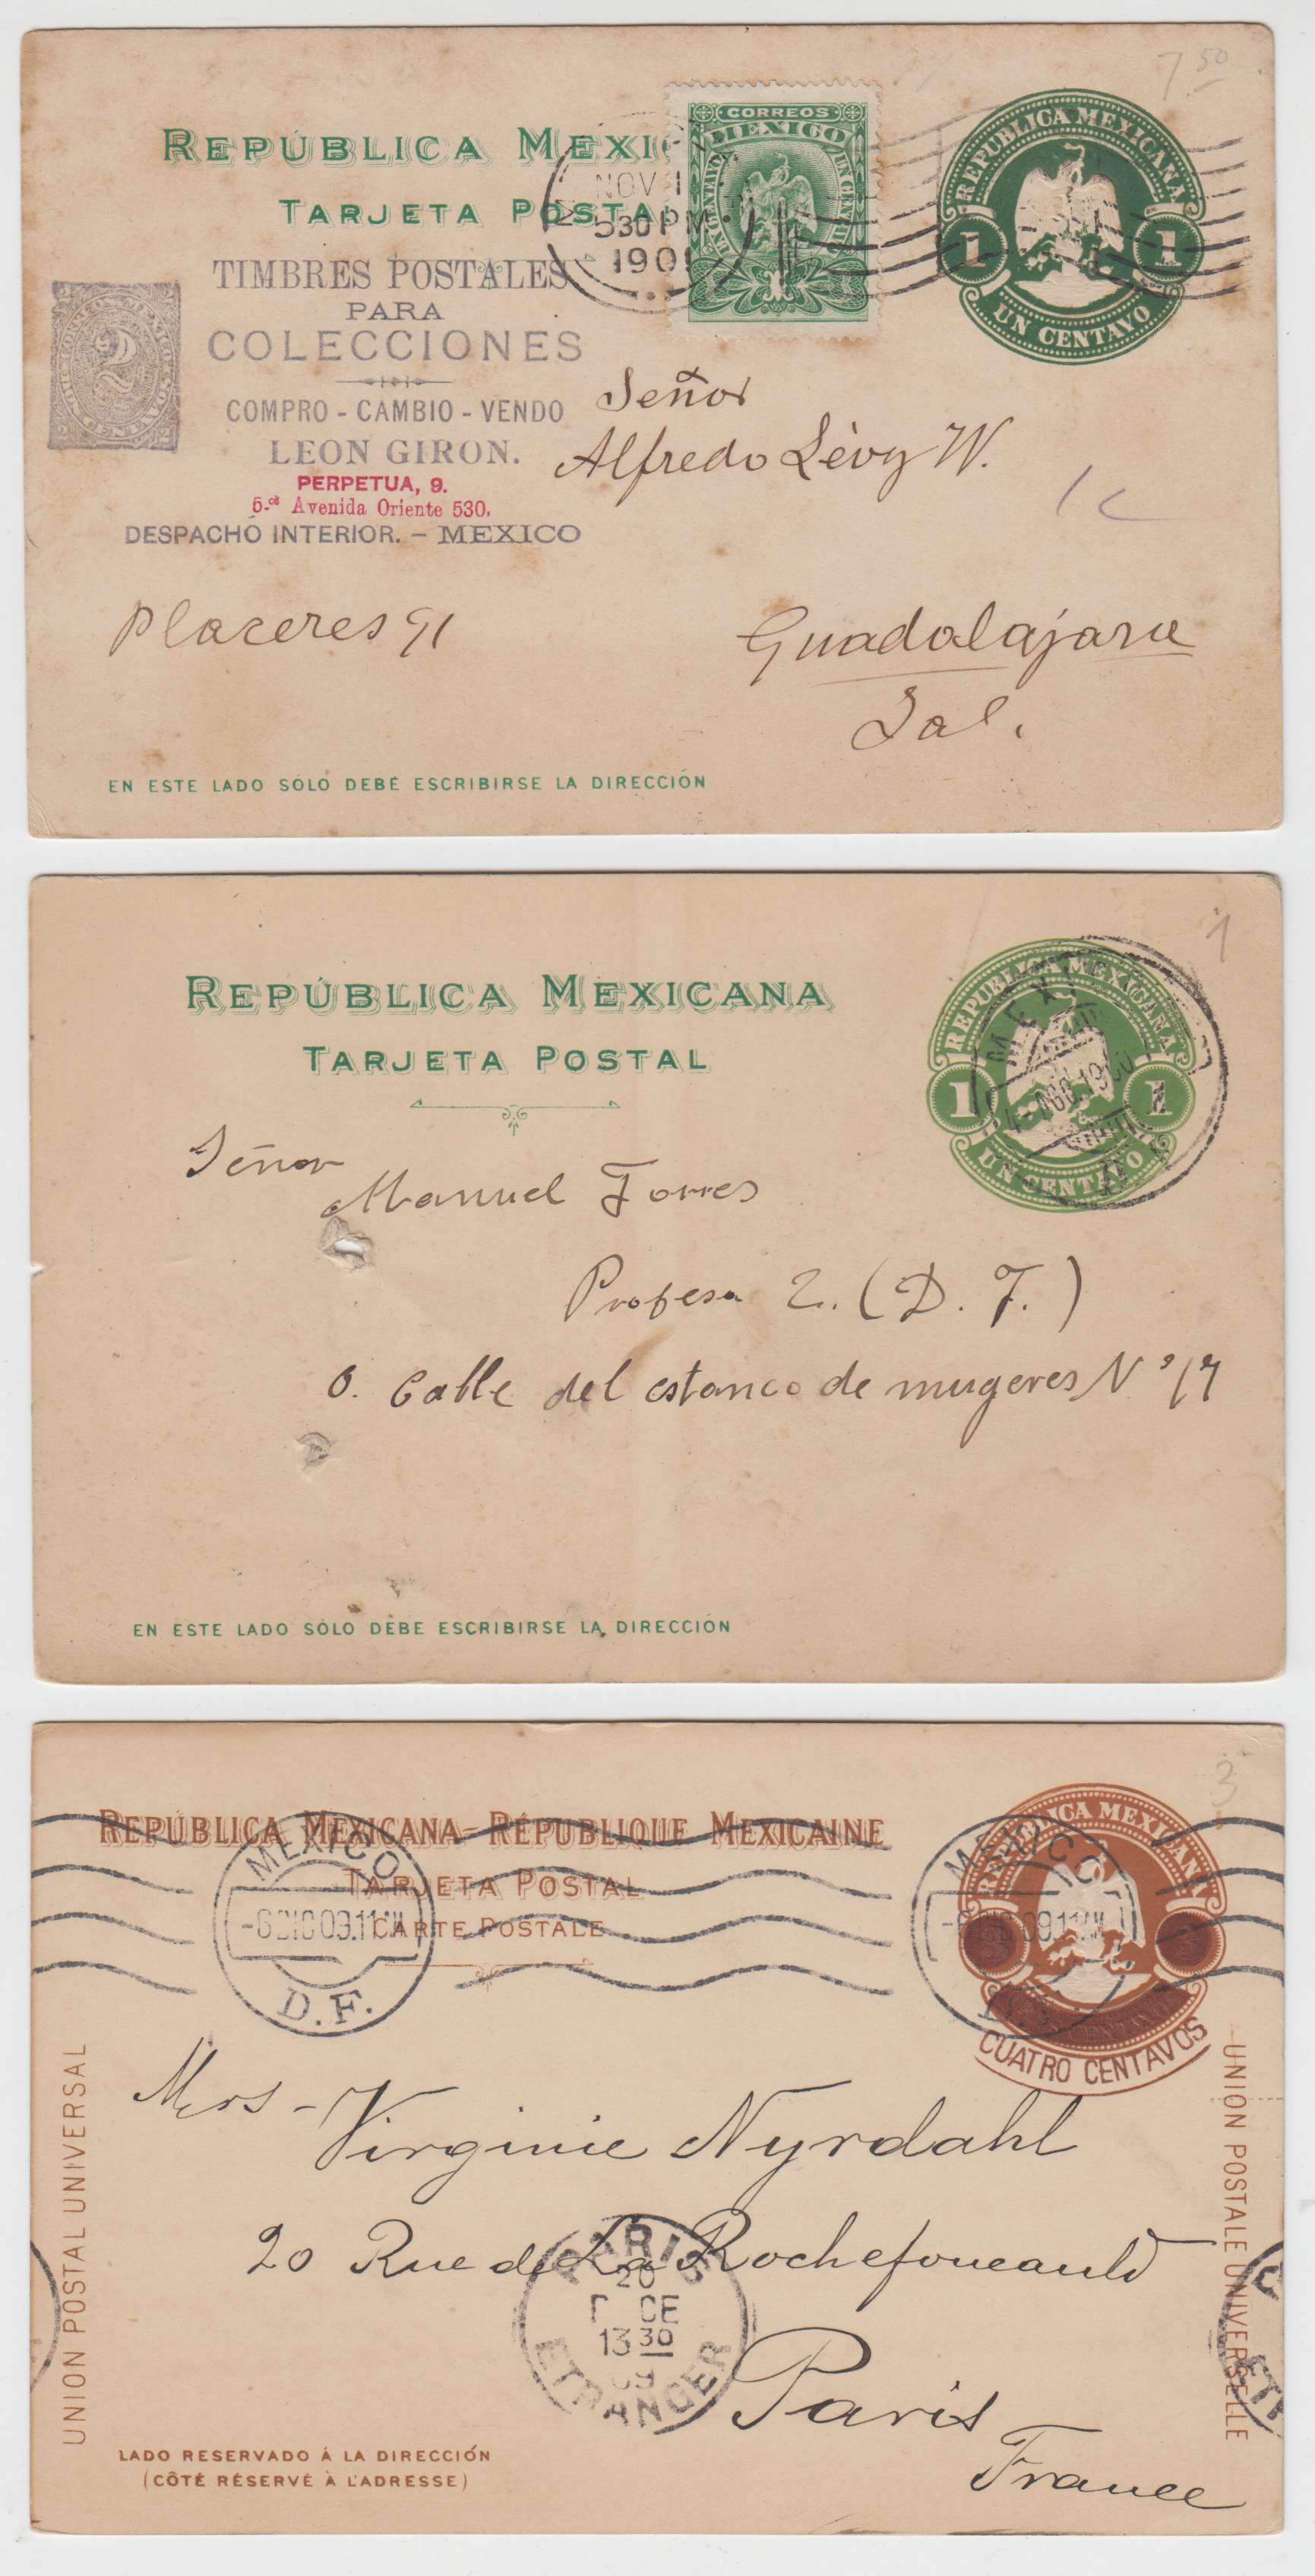 7.50
REPÚBLICA MEXI
TARJETA POSTAL
CORREOS
MEXICO
UN CENTAVO
NOV 1
530 PM
1901
REPUBLICA MEXICANA
1 1
UN CENTAVO
TIMBRES POSTALES
PARA
COLECCIONES
2
COMPRO - CAMBIO - VENDO
LEON GIRON.
PERPETUA, 9.
5.ª Avenida Oriente 530.
DESPACHO INTERIOR. - MEXICO
Señor
Alfredo Lévy W.
1c
Placeres 91
Guadalajara
Jal.
EN ESTE LADO SÓLO DEBE ESCRIBIRSE LA DIRECCIÓN
1
REPÚBLICA MEXICANA
TARJETA POSTAL
REPUBLICA MEXICANA
1 1
UN CENTAVO
MEX
4-AGO.1900
Señor
Manuel Torres
Profesa 2. (D. F.)
o. Calle del estanco de mugeres Nº 17
EN ESTE LADO SÓLO DEBE ESCRIBIRSE LA DIRECCIÓN
3
REPÚBLICA MEXICANA-RÉPUBLIQUE MEXICAINE
TARJETA POSTAL
CARTE POSTALE
MEXICO
-6DIC09.11
D.F.
MEXICO
-6DIC09.11
CUATRO CENTAVOS
UNION POSTAL UNIVERSAL
UNION POSTALE UNIVERSELLE
Mrs - Virginie Nyrdahl
20 Rue de La Rochefoucauld
Paris
France
PARIS
20
DECE
13 30
09
ETRANGER
LADO RESERVADO Á LA DIRECCIÓN
(CÔTÉ RÉSERVÉ À L'ADRESSE)